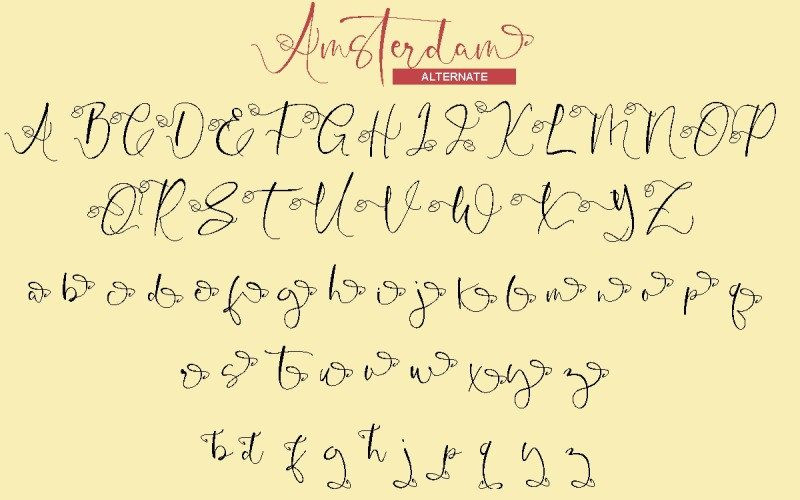 Amsterdam
ALTERNATE
A B C D E F G H I J K L M N O P
Q R S T U V W X Y Z
a b c d e f g h i j k l m n o p q
r s t u v w x y z
b d f g h j p q y z